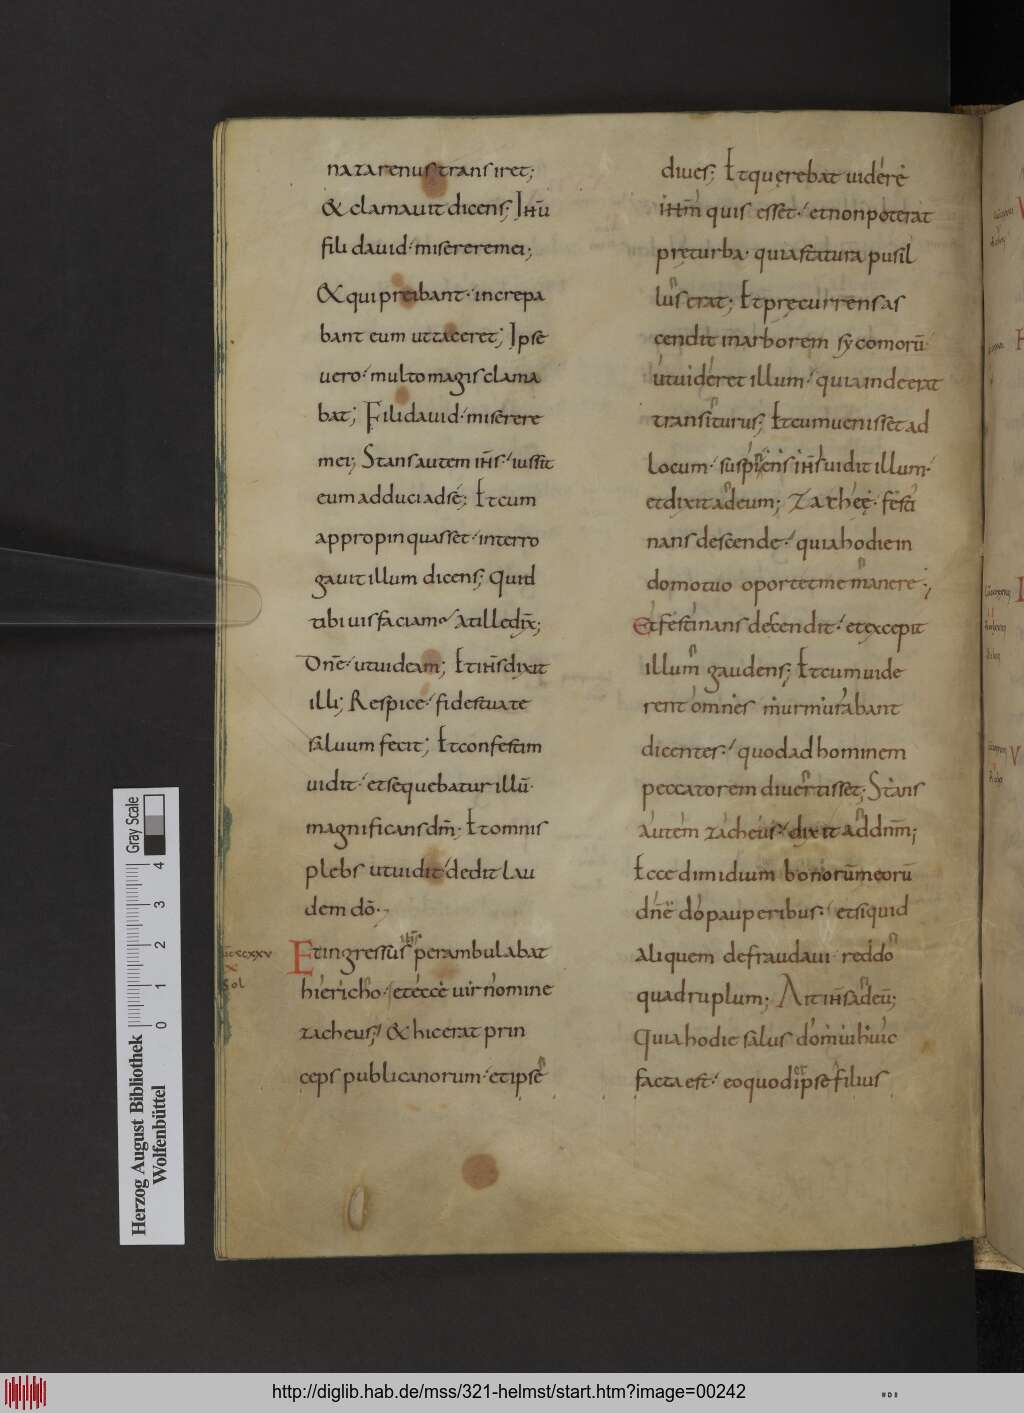 nazarenus transiret;
& clamauit dicens; Ihū
fili dauid· miserere mei;
& qui preibant· increpa
bant eum ut taceret; Ipse
uero· multo magis clama
bat; Fili dauid· miserere
mei; Stans autem ihs· iussit
eum adduci ad se; Et cum
appropinquasset· interro
gauit illum dicens; Quid
tibi uis faciam· At ille dix̄;
Dn̄e· ut uideam; Et ihs dixit
illi; Respice· fides tua te
saluum fecit; Et confestim
uidit· et sequebatur illū·
magnificans dm̄; Et omnis
plebs ut uidit· dedit lau
dem dō·
ccxxv
x
Sol
Et ingressus ihs perambulabat
hiericho· et ecce uir nomine
zacheus; & hic erat prin
ceps publicanorum· et ipse
diues; Et querebat uidere
ihm̄ quis esset· et non poterat
pre turba· quia statura pusil
lus erat; Et precurrens as
cendit in arborem sycomorū
ut uideret illum· quia inde erat
transiturus; Et cum uenisset ad
locum· suspiciens ihs uidit illum·
et dixit ad eum; Zachee· festi
nans descende· quia hodie in
domo tuo oportet me manere;
Et festinans descendit· et excepit
illum gaudens; Et cum uide
rent omnes murmurabant
dicentes· quod ad hominem
peccatorem diuertisset; Stans
autem zacheus· dixit ad dnm̄;
Ecce dimidium bonorūm eorū
dn̄e do pauperibus· et si quid
aliquem defraudaui reddo
quadruplum; Ait ihs ad eū;
Quia hodie salus domui huic
facta est· eo quod ipse filius
Herzog August Bibliothek
Wolfenbüttel
0 1 2 3 4
Gray Scale
http://diglib.hab.de/mss/321-helmst/start.htm?image=00242